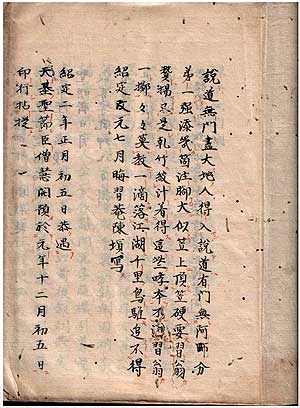 說道無門盡大地人得入說道有門無阿師分
第一強添幾箇注脚大似笠上頂笠硬要習翁
贊揚又是乾竹絞汁着得這些哮本不消習翁
一擲々々莫教一滴落江湖千里烏騅追不得
紹定改元七月晦習菴陳塤寫
紹定二年正月初五日恭遇
天基聖節臣僧慧開預於元年十二月初五日
印行拈提